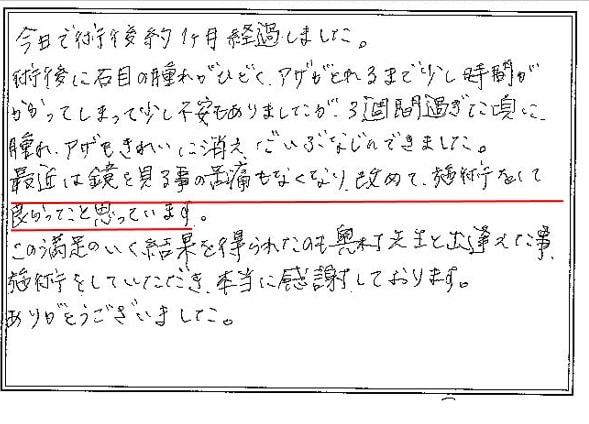 今日で術後約1ヶ月経過しました。
術後に右目の腫れがひどく、アザがとれるまで少し時間が
かかってしまって少し不安もありましたが、3週間過ぎた頃に、
腫れ、アザもきれいに消え、だいぶなじんできました。
最近は鏡を見る事の苦痛もなくなり、改めて、施術をして
良かったと思っています。
この満足のいく結果を得られたのも奥村先生と出逢えた事、
施術をしていただき、本当に感謝しております。
ありがとうございました。